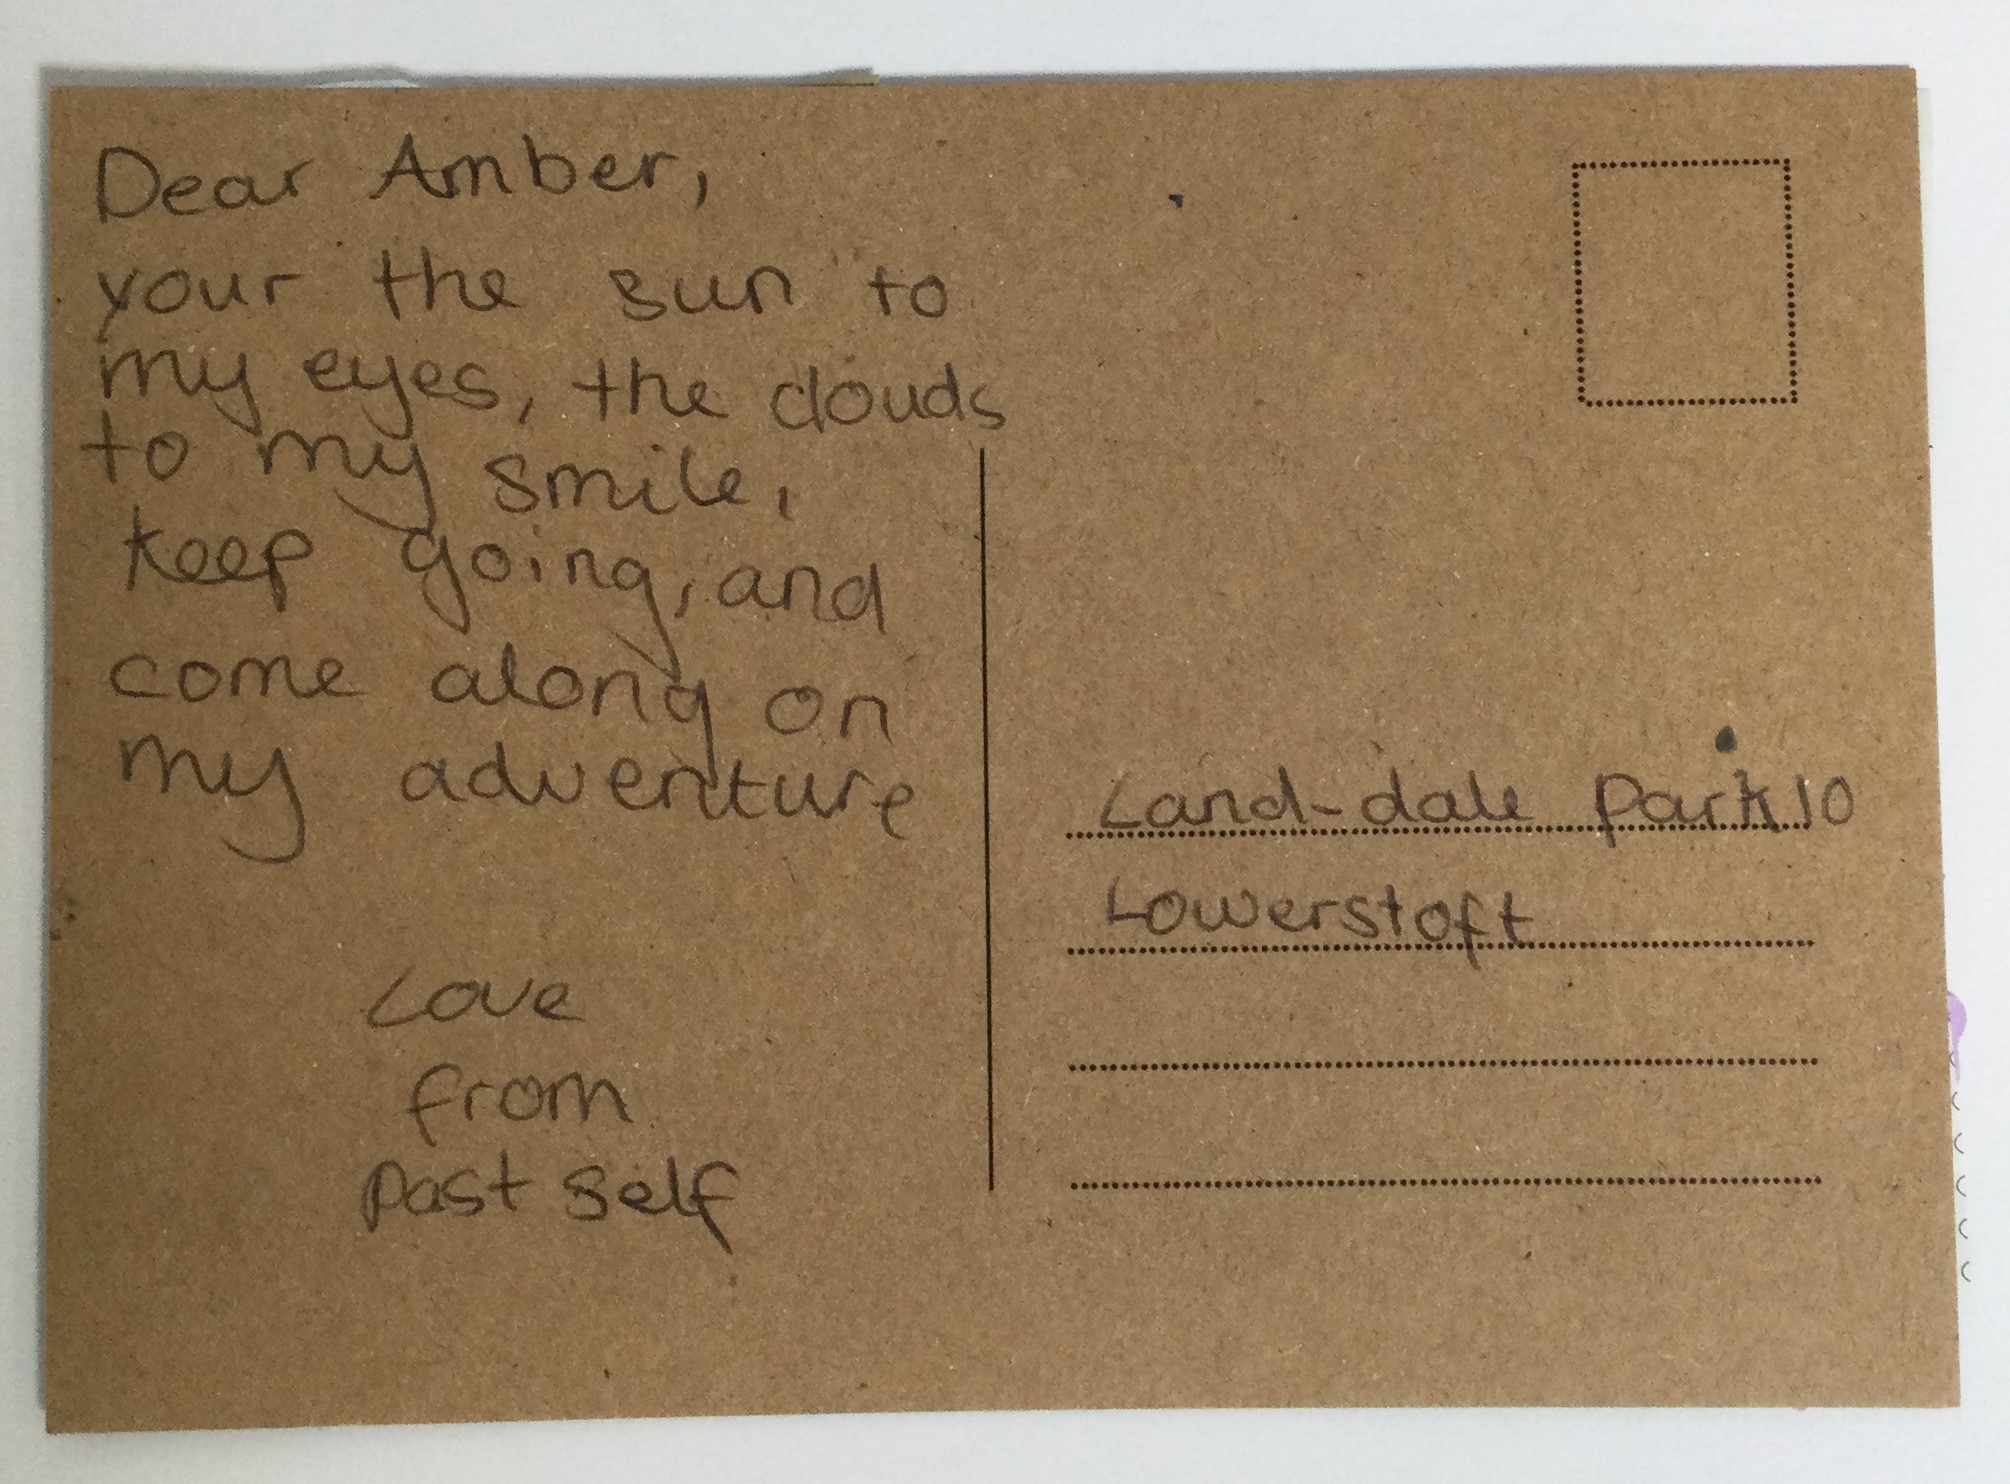 Dear Amber,
your the sun to
my eyes, the clouds
to my smile,
keep going, and
come along on
my adventure
Love
from
past self
Land-dale Park 10
Lowerstoft